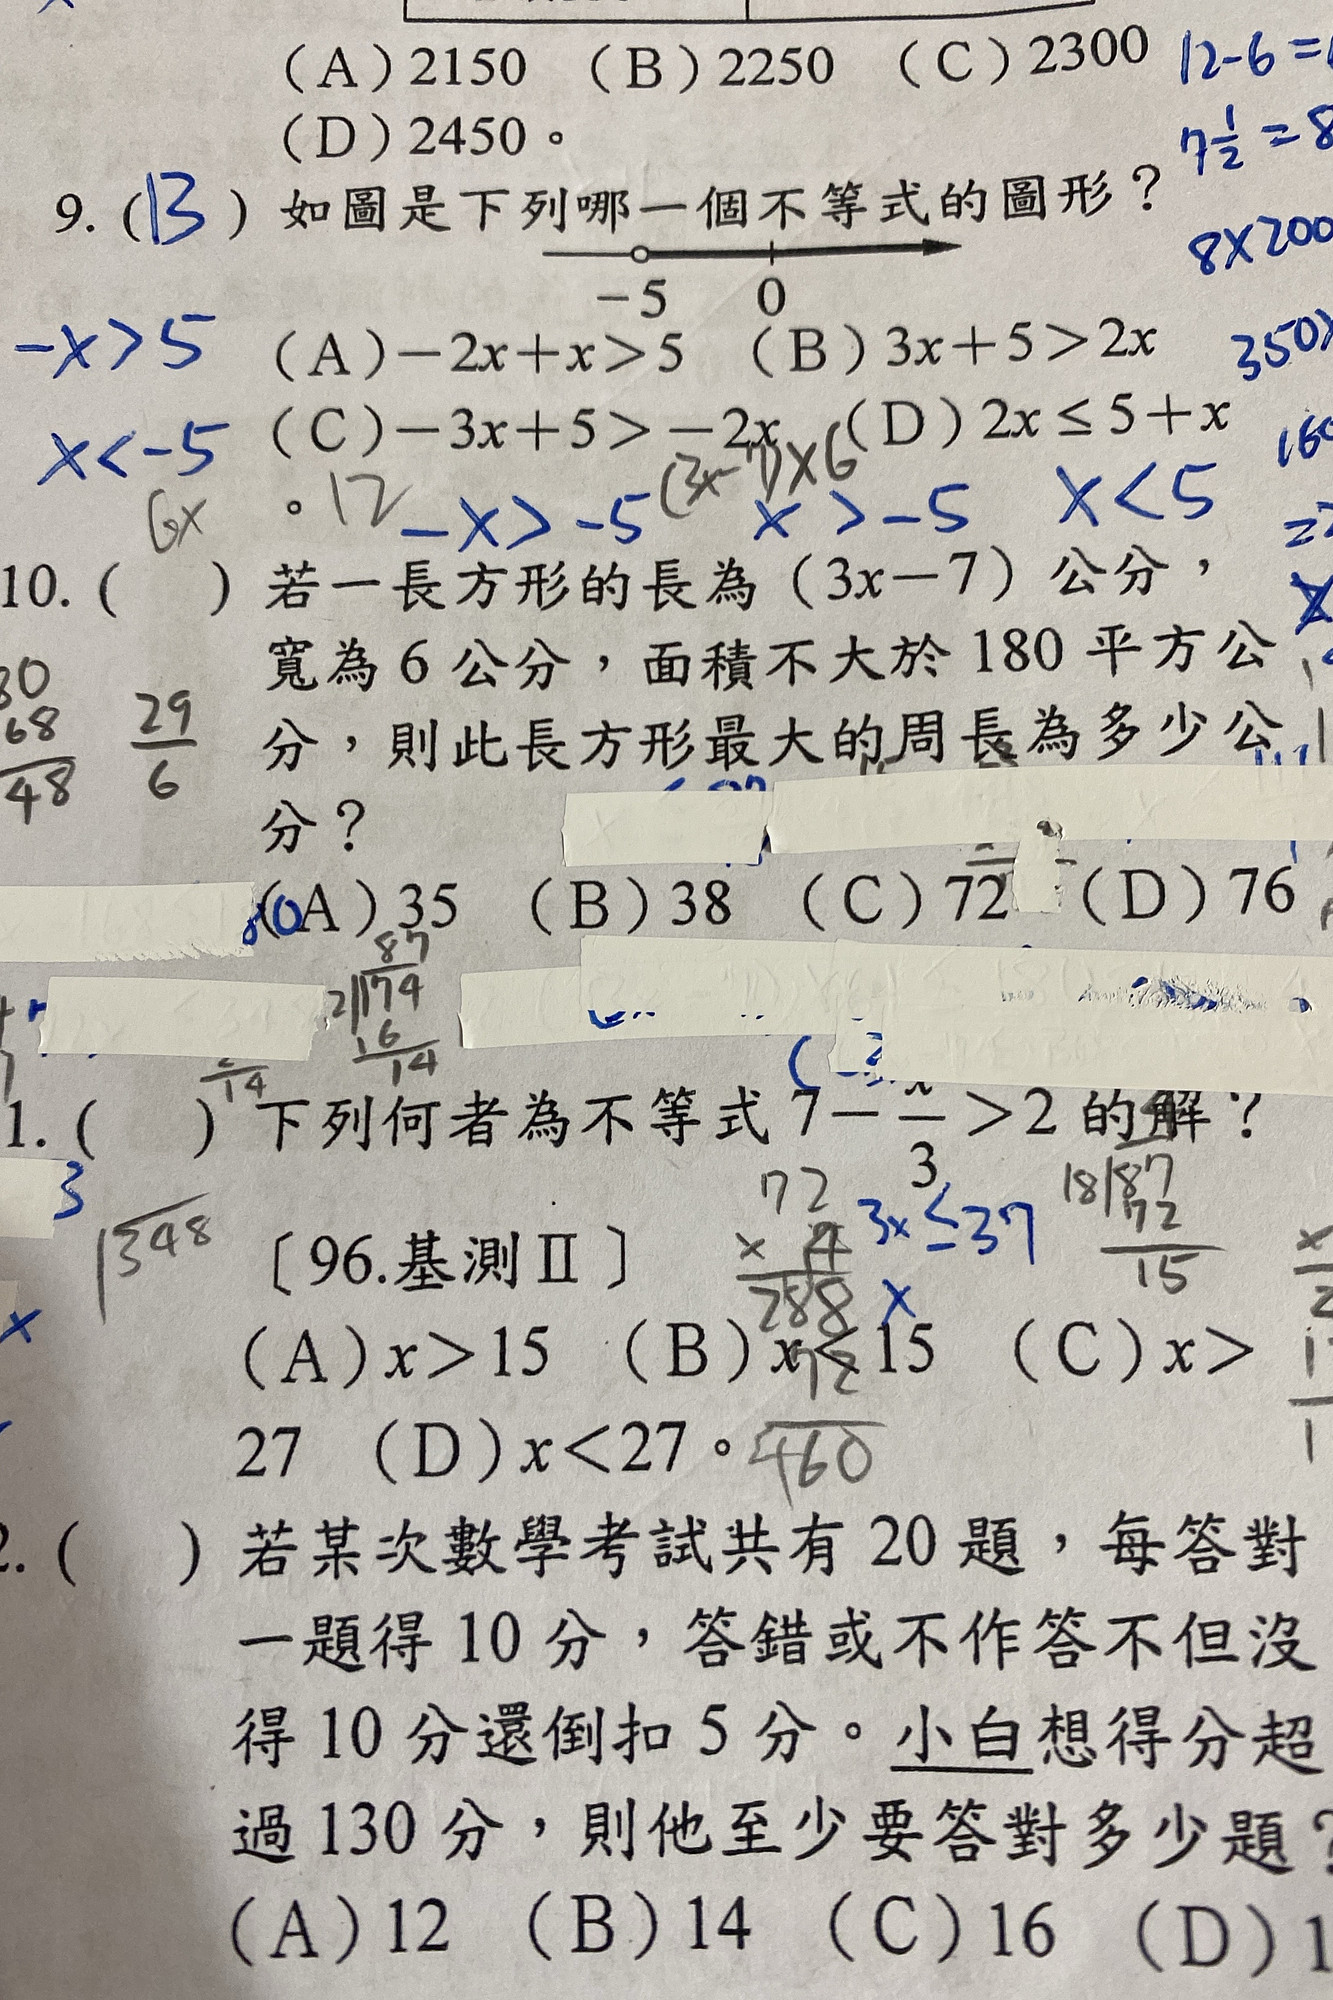 (A)2150 (B)2250 (C)2300
(D)2450。
12-6=
7 1/2 = 8
9. (B) 如圖是下列哪一個不等式的圖形？
8×200
-5 0
-x>5
(A)-2x+x>5 (B)3x+5>2x
350
x<-5
(C)-3x+5>-2x (D)2x≤5+x
。
6x 12 (3x-7)×6
-x>-5 x>-5 x<5
10. ( ) 若一長方形的長為(3x-7)公分，
寬為6公分，面積不大於180平方公
分，則此長方形最大的周長為多少公
分？
68
48
29
6
(A)35 (B)38 (C)72 (D)76
87
2 174
16
14
14
1. ( ) 下列何者為不等式7-x/3>2的解？
3
348
〔96.基測Ⅱ〕
72
× 4
288
72
3x≤37
x
18 87
72
15
(A)x>15 (B)x<15 (C)x>
27 (D)x<27。
460
2. ( ) 若某次數學考試共有20題，每答對
一題得10分，答錯或不作答不但沒
得10分還倒扣5分。小白想得分超
過130分，則他至少要答對多少題？
(A)12 (B)14 (C)16 (D)1